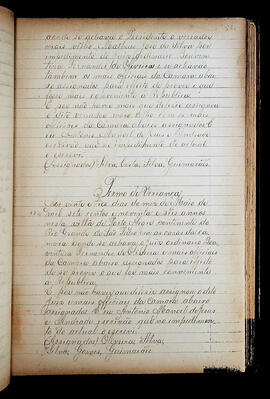 aonde se achava o Presidente e vereador
mais velho Matheus José da Silva por
impedimento do Juiz ordinario
Fernandes de Oliveira e se achavão
tambem os mais officiaes da Camara abai-
xo assignados para effeito de prover o que
fosse mais conveniente á Republica.
E por não haver mais que deferir assignou
o dito vereador mais velho com os mais
officiaes da Camara abaixo assignados E
eu Antonio Manoel de Jesus e Andrade
escrivão que no impedimento do actual
o escrevi.
(Assignados) Silva, Costa, Silva, Guimarães
Termo de Vereança
Aos vinte e dias do mez de Maio de
mil sete centos e noventa e seis annos
nesta villa de Porto Alegre continente do
Rio Grande de São Pedro em as casas da ca-
mara aonde se achava o Juiz ordinario
ventura Fernandes de Oliveira e mais officiaes
da Camara abaixo assignados para effeito
de se prover o que for mais conveniente
á Republica.
E por não haver que deferir assignou o dito
Juiz e mais officiaes da Camara abaixo
assignados E eu Antonio Manoel de Jesus
e Andrade escrivão que no impedimen-
to do actual o escrevi.
(Assignados) Oliveira, Silva,
Silva, Gomes, Guimarães